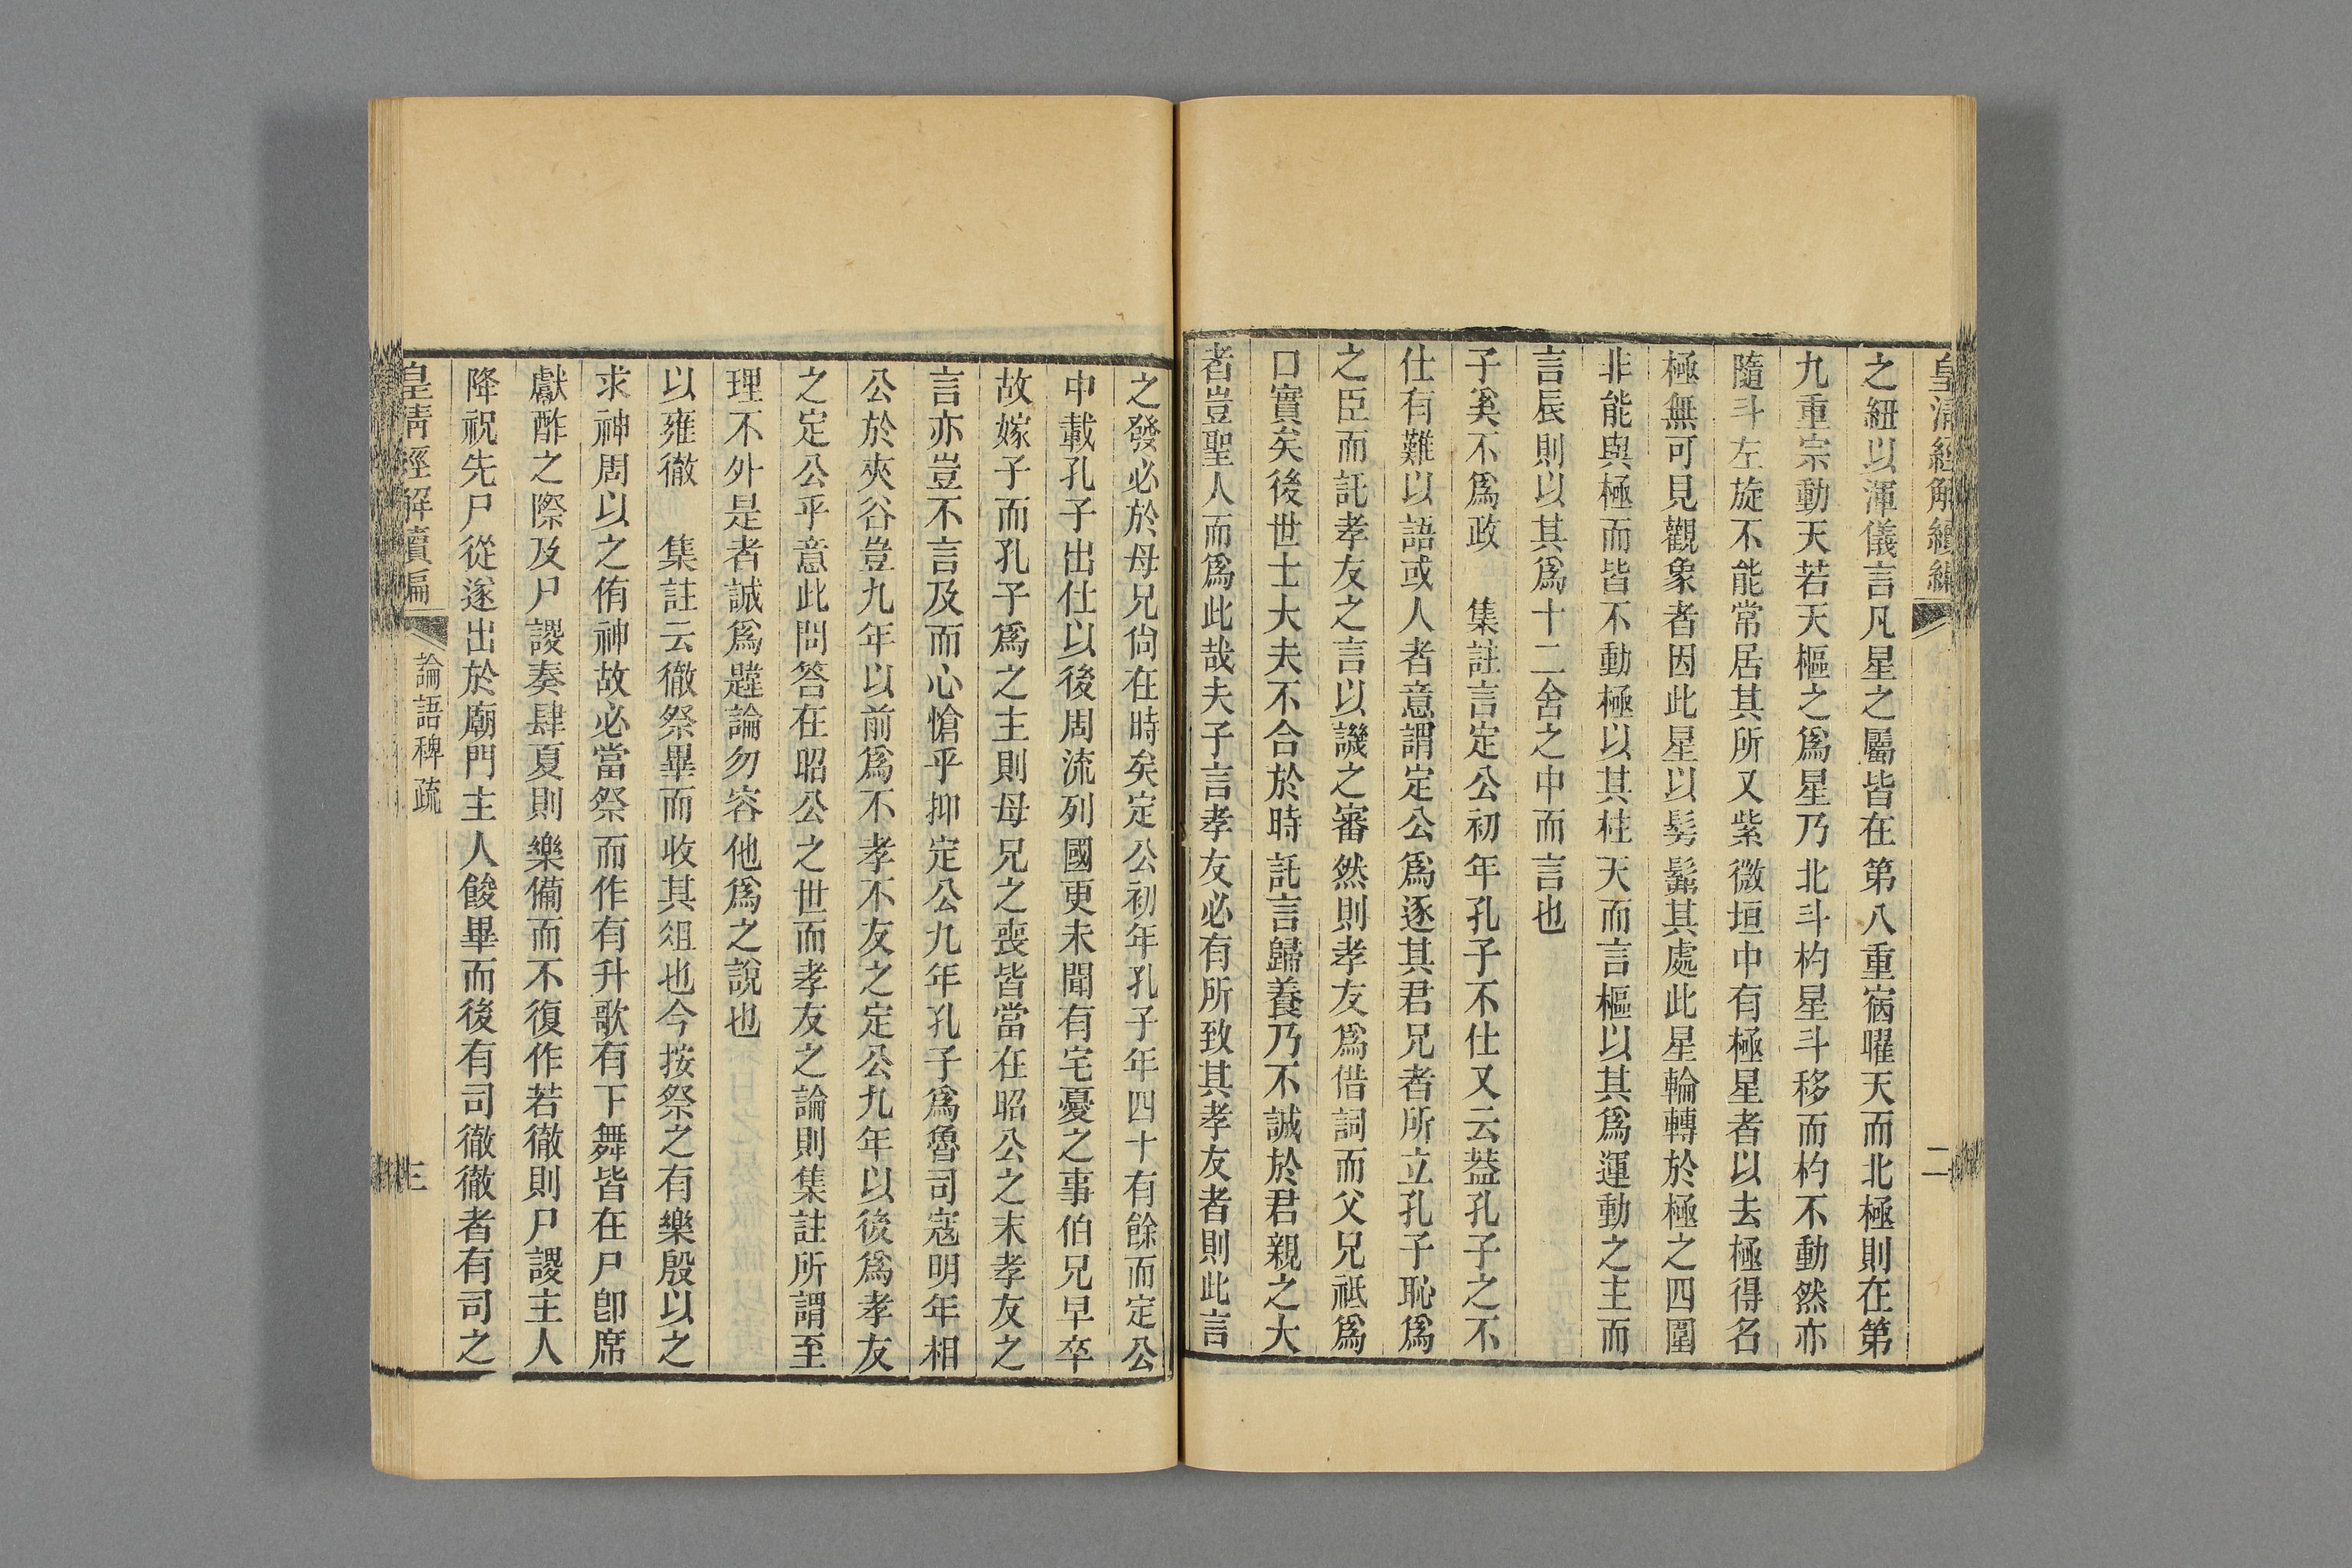 皇清經解續編
二
之紐以渾儀言凡星之屬皆在第八重宿曜天而北極則在第
九重宗動天若天樞之爲星乃北斗杓星斗移而杓不動然亦
隨斗左旋不能常居其所又紫微垣中有極星者以去極得名
極無可見觀象者因此星以髣髴其處此星輪轉於極之四圍
非能與極而皆不動極以其柱天而言樞以其爲運動之主而
言辰則以其爲十二舍之中而言也
子奚不爲政　集註言定公初年孔子不仕又云葢孔子之不
仕有難以語或人者意謂定公爲逐其君兄者所立孔子恥爲
之臣而託孝友之言以譏之審然則孝友爲借詞而父兄祗爲
口實矣後世士大夫不合於時託言歸養乃不誠於君親之大
者豈聖人而爲此哉夫子言孝友必有所致其孝友者則此言
之發必於母兄尙在時矣定公初年孔子年四十有餘而定公
中載孔子出仕以後周流列國更未聞有宅憂之事伯兄早卒
故嫁子而孔子爲之主則母兄之喪皆當在昭公之末孝友之
言亦豈不言及而心愴乎抑定公九年孔子爲魯司寇明年相
公於夾谷豈九年以前爲不孝不友之定公九年以後爲孝友
之定公乎意此問答在昭公之世而孝友之論則集註所謂至
理不外是者誠爲韙論勿容他爲之說也
以雍徹　集註云徹祭畢而收其俎也今按祭之有樂殷以之
求神周以之侑神故必當祭而作有升歌有下舞皆在尸卽席
獻酢之際及尸謖奏肆夏則樂備而不復作若徹則尸謖主人
降祝先尸從遂出於廟門主人餕畢而後有司徹徹者有司之
皇清經解續編
論語稗疏
三